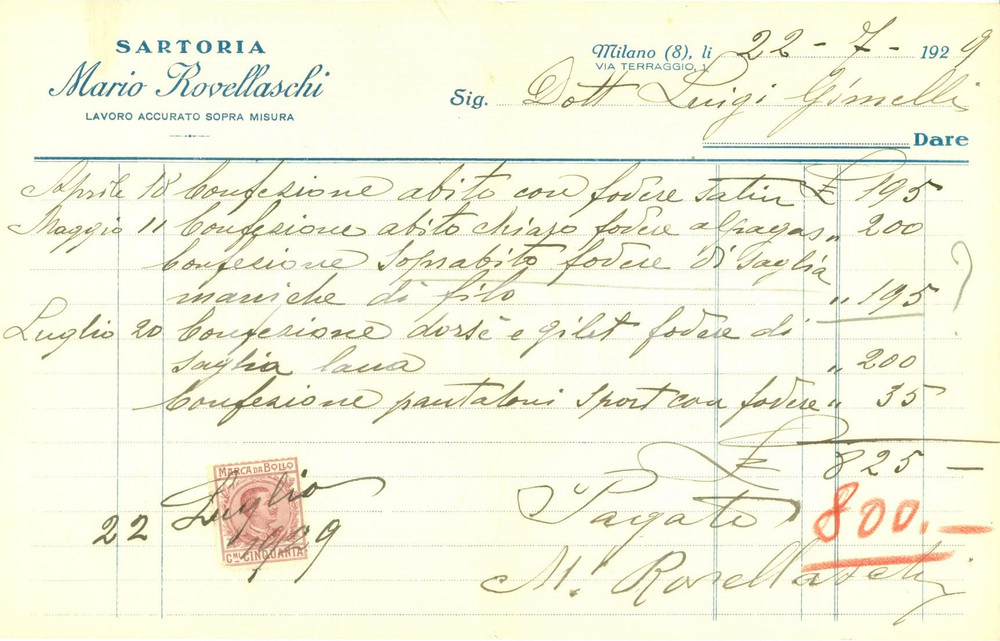 SARTORIA
Mario Rovellaschi
LAVORO ACCURATO SOPRA MISURA
Milano (8), li 22-7-1929
VIA TERRAGGIO, 1
Sig. Dott Luigi Gimelli
Dare
Aprile 18 Confezione abito con fodere satin £ 195
Maggio 11 Confezione abito chiaro fodere alpagas „ 200
Confezione Soprabito fodere di Saglia
maniche di filo „ 195 ?
Luglio 20 Confezione dorsè e gilet fodere di
saglia lana „ 200
Confezione pantaloni Sport con fodere „ 35
£ 825 —
MARCA DA BOLLO
22 Luglio 1929
Cmi CINQUANTA
Pagato 800.—
M. Rovellaschi